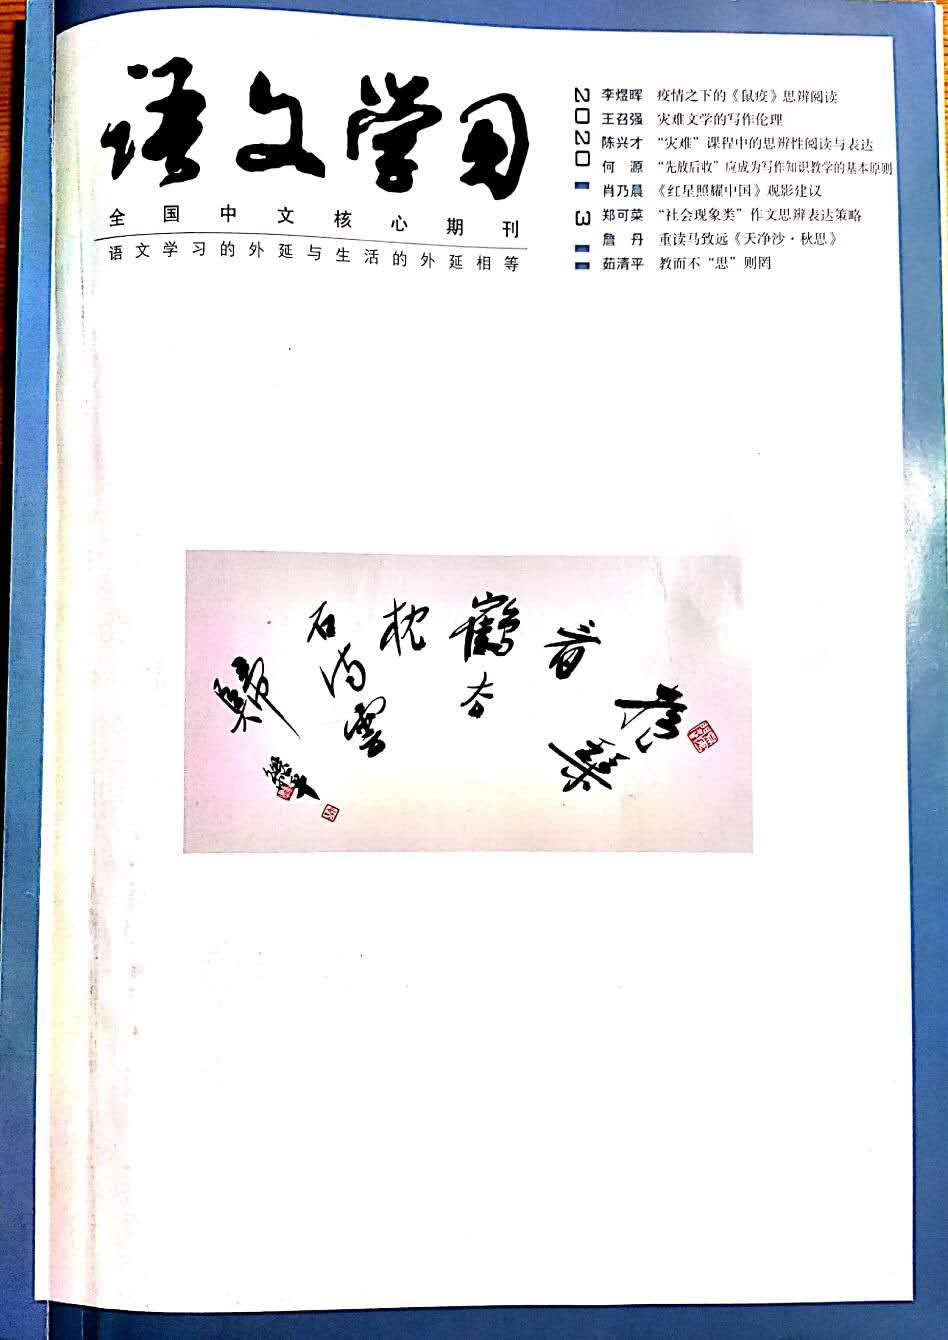 语文学习
全国中文核心期刊
语文学习的外延与生活的外延相等
2020 3
李煜晖 疫情之下的《鼠疫》思辨阅读
王召强 灾难文学的写作伦理
陈兴才 “灾难”课程中的思辨性阅读与表达
何源 “先放后收”应成为写作知识教学的基本原则
肖乃晨 《红星照耀中国》观影建议
郑可菜 “社会现象类”作文思辨表达策略
詹丹 重读马致远《天净沙·秋思》
茹清平 教而不“思”则罔
抱琴
看
鶴去
枕
石待雲
歸